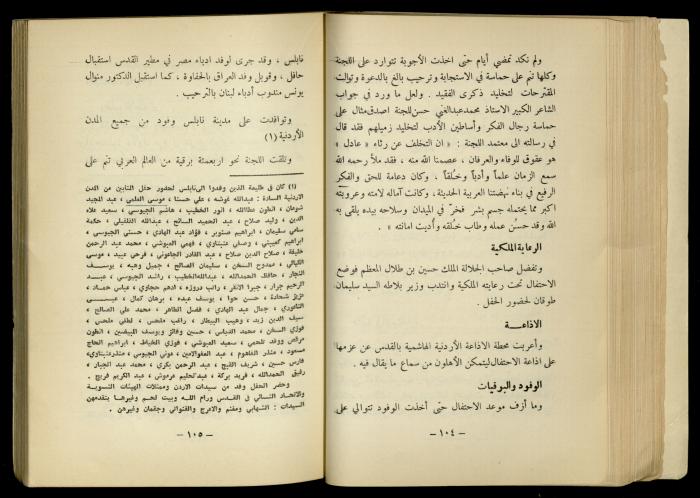 ولم نكد تمضي أيام حتى اخذت الأجوبة تتوارد على اللجنة
وكلها تنم على حماسة في الاستجابة وترحيب بالغ بالدعوة وتوالت
المقترحات لتخليد ذكرى الفقيد . ولعل ما ورد في جواب
الشاعر الكبير الاستاذ محمد عبد الغني حسن للجنة اصدق مثال على
حماسة رجال الفكر وأساطين الأدب لتخليد زميلهم فقد قال
في رسالته الى معتمد اللجنة : « ان التخلف عن رثاء « عادل »
هو عقوق للوفاء والعرفان ، عصمنا الله منه ، فقد ملأ رحمه الله
سمع الزمان علماً وأدباً وخلقاً ، وكان دعامة للحق والفكر
الرفيع في بناء نهضتنا العربية الحديثة ، وكانت آماله لامته وعروبته
اكبر مما يحتمله جسم بشر فخر في الميدان وسلاحه بيده يلقى به
الله وقد حسن عمله وطاب خلقه وأديت امانته » .
الرعاية الملكية
وتفضل صاحب الجلالة الملك حسين بن طلال المعظم فوضع
الاحتفال تحت رعايته الملكية وانتدب وزير بلاطه السيد سليمان
طوقان لحضور الحفل .
الاذاعـة
وأعربت محطة الاذاعة الأردنية الهاشمية بالقدس عن عزمها
على اذاعة الاحتفال ليتمكن الأهلون من سماع ما يقال فيه .
الوفود والبرقيات
وما أزف موعد الاحتفال حتى أخذت الوفود تتوالى على
– ١٠٤ –
نابلس ، وقد جرى لوفد ادباء مصر في مطير القدس استقبال
حافل ، وقوبل وفد العراق بالحفاوة ، كما استقبل الدكتور متوال
يونس مندوب أدباء لبنان بالترحيب .
وتوافدت على مدينة نابلس وفود من جميع المدن
الأردنية (١)
وتلقت اللجنة نحو اربعمئة برقية من العالم العربي تنم على
(١) كان في طليعة الذين وفدوا الى نابلس لحضور حفل التأبين من المدن
الاردنية السادة : عبدالله غوشه ، علي حسنا ، موسى العلمي ، عبد المجيد
شومان ، انطون عطاالله ، انور الخطيب ، هاشم الجيوسي ، سعيد علاء
الدين ، صلاح وليد ، عبد الحميد السائح ، عبدالله القلقيلي ، حكمة
سامي سليمان ، ابراهيم صنوبر ، فؤاد عبد الهادي ، حسني الجيوسي ،
ابراهيم كميبتي ، وصفي عنبتاوي ، فهمي العبوشي ، محمد عبد الرحمن
خليفة ، صلاح الدين صلاح ، عبد القادر الجاعوني ، فرحي عبيد ، موسى
الليالي ، ممدوح السخن ، سليمان الصالح ، جميل وهبه ، يوسف
النجار ، حافظ الحمدالله ، عبدالله الخطيب ، راشد الجيوسي ، عبد
الرحيم جرار ، جبرا الانقر ، راتب دروزه ، ادهم حجاوي ، عباس حماد ،
عزيز شحادة ، حسن حوا ، يوسف عبده ، برهان كمال ، عيسى
الناعوري ، جمال عبد الهادي ، فضل الظاهر ، محمد علي الصالح ،
سيف الدين زيد ، وهيب البيطار ، راغب ملحس ، لطفي ملحس ،
فوزي السخن ، محمد الدباس ، حسين وفائز ويوسف المبيضين ، انطون
مرقص ووفد تلحمي ، سعيد العبوشي ، فوزي الخياط ، ابراهيم الحاج
مسعود ، منذر الفاهوم ، عبد العفو الامين ، عوني الجيوسي ، منذر عنبتاوي ،
فارس حسين ، شريف القبج ، عبد الرحمن بكري ، محمد عبد الجبار ،
رفيق الحمدالله ، فريد بركة ، عبد الحليم مرموش ، عبد الكريم فريج .
وحضر الحفل وفد من سيدات الاردن وممثلات الهيئات النسوية
والاتحاد النسائي في القدس ورام الله وبيت لحم وغيرها بتقدمهن
السيدات : الشهابي ومغنم والاعرج والقتواتي وجقمان وغيرهن .
– ١٠٥ –